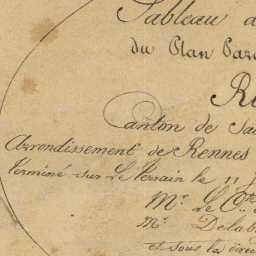 Tableau
du Plan
R
Canton de
Arrondissement de Rennes
Terminé sur le terrain le 11
Mr. Le Cte
Mr. Delab
et sous la